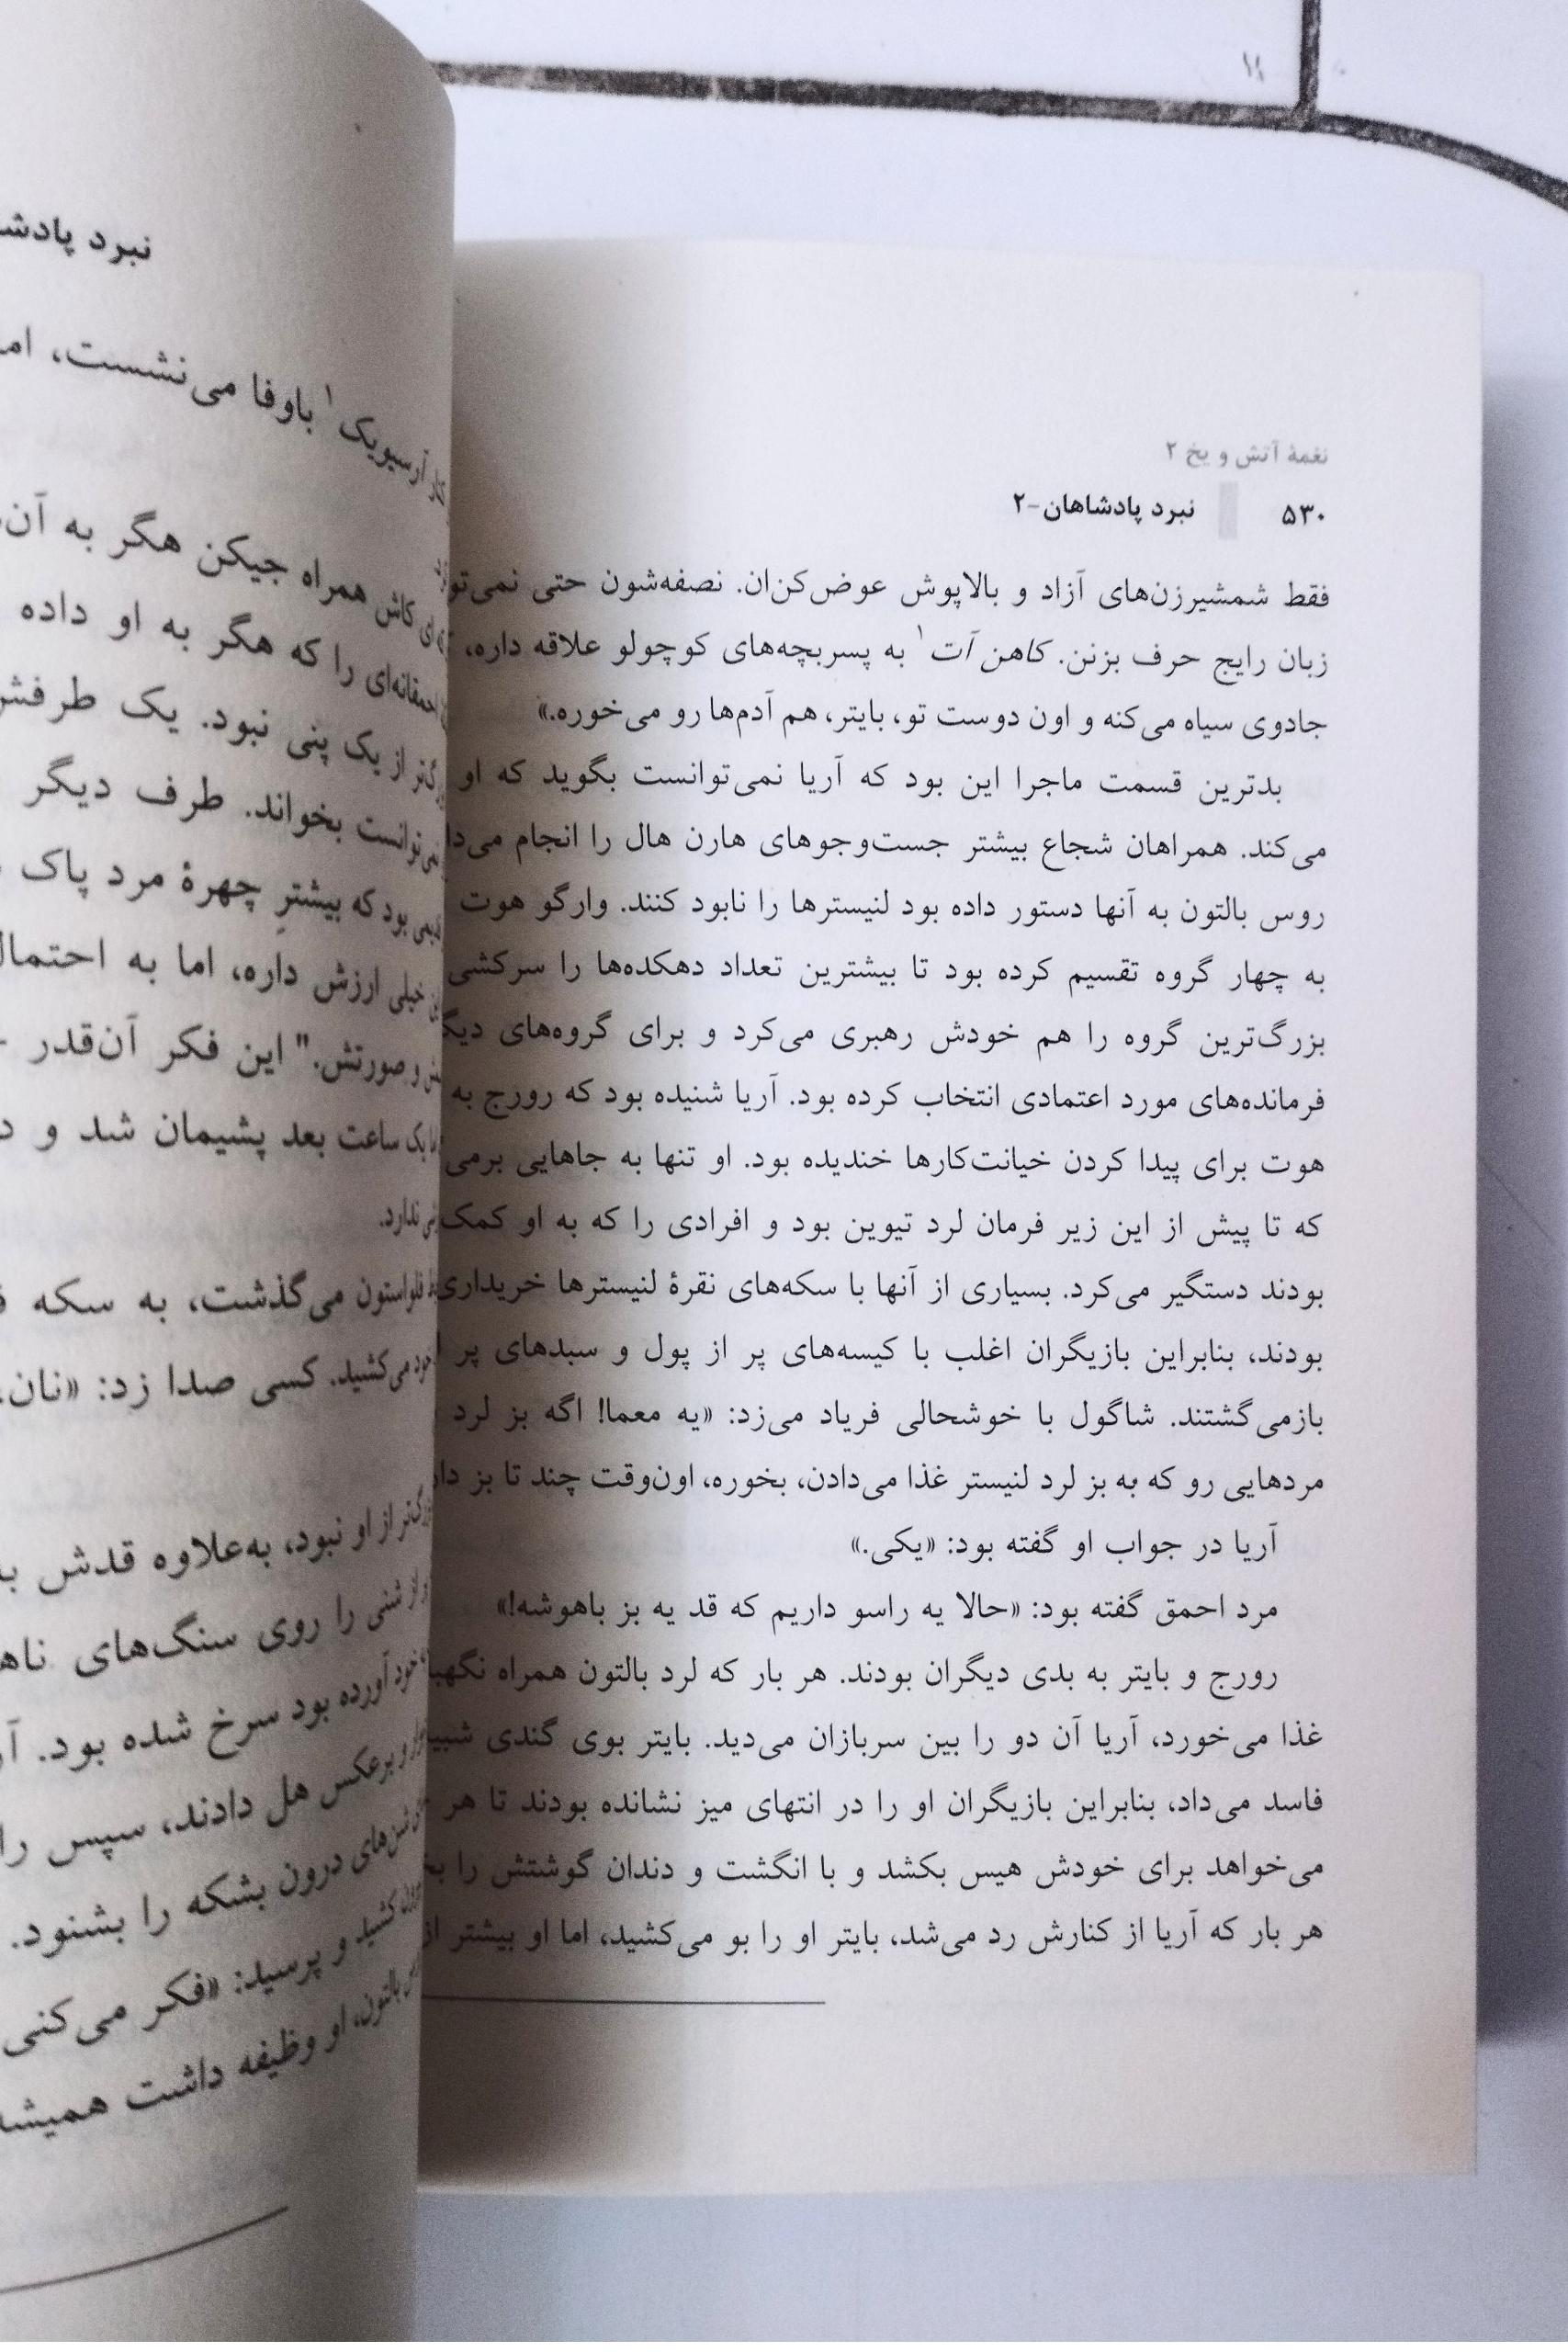 نغمهٔ آتش و یخ ۲
۵۳۰ نبرد پادشاهان-۲
فقط شمشیرزن‌های آزاد و بالاپوش عوض‌کن‌ان. نصفه‌شون حتی
زبان رایج حرف بزنن. کاهن اَت۱ به پسربچه‌های کوچولو علاقه داره،
جادوی سیاه می‌کنه و اون دوست تو، بایتر، هم آدم‌ها رو می‌خوره.»
بدترین قسمت ماجرا این بود که آریا نمی‌توانست بگوید که او
می‌کند. همراهان شجاع بیشتر جست‌وجوهای هارن هال را انجام
روس بالتون به آنها دستور داده بود لنیسترها را نابود کنند. وارگو هوت
به چهار گروه تقسیم کرده بود تا بیشترین تعداد دهکده‌ها را سرکشی
بزرگ‌ترین گروه را هم خودش رهبری می‌کرد و برای گروه‌های
فرمانده‌های مورد اعتمادی انتخاب کرده بود. آریا شنیده بود که رورج به
هوت برای پیدا کردن خیانت‌کارها خندیده بود. او تنها به جاهایی
که تا پیش از این زیر فرمان لرد تیوین بود و افرادی را که به او کمک
بودند دستگیر می‌کرد. بسیاری از آنها با سکه‌های نقرهٔ لنیسترها خریداری
بودند، بنابراین بازیگران اغلب با کیسه‌های پر از پول و سبدهای پر
بازمی‌گشتند. شاگول با خوشحالی فریاد می‌زد: «یه معما! اگه بز لرد
مردهایی رو که به بز لرد لنیستر غذا می‌دادن، بخوره، اون‌وقت چند تا بز
آریا در جواب او گفته بود: «یکی.»
مرد احمق گفته بود: «حالا یه راسو داریم که قد یه بز باهوشه!»
رورج و بایتر به بدی دیگران بودند. هر بار که لرد بالتون همراه
غذا می‌خورد، آریا آن دو را بین سربازان می‌دید. بایتر بوی گندی
فاسد می‌داد، بنابراین بازیگران او را در انتهای میز نشانده بودند تا هر
می‌خواهد برای خودش هیس بکشد و با انگشت و دندان گوشتش را
هر بار که آریا از کنارش رد می‌شد، بایتر او را بو می‌کشید، اما او بیشتر از
نبرد
کنار آرسیویک۱ باوفا می‌نشست،
ای کاش همراه جیکن هگر به
احمقانه‌ای را که هگر به او داده
از یک پنی نبود. یک
نمی‌توانست بخواند. طرف دیگر
بود که بیشترِ چهرهٔ مرد پاک
خیلی ارزش داره، اما به
و صورتش." این فکر آن‌قدر
یک ساعت بعد پشیمان شد و
ندارد.
فلواستون می‌گذشت، به سکه
خود می‌کشید. کسی صدا زد: «نان
از او نبود، به‌علاوه قدش
را روی سنگ‌های
خود آورده بود سرخ شده بود.
و برعکس هل دادند، سپس
درون بشکه را بشنود.
کشید و پرسید: «فکر می‌کنی
بالتون، او وظیفه داشت